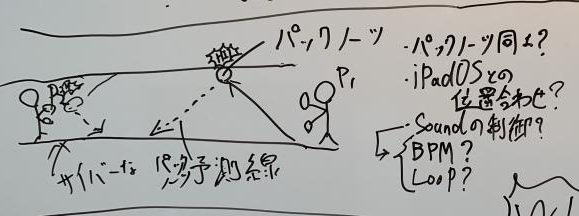 パックノーツ
P₁
サイバーな
予測線
・パックノーツ同士?
・iPadOSとの
位置合わせ?
・Soundの制御?
BPM?
LooP?